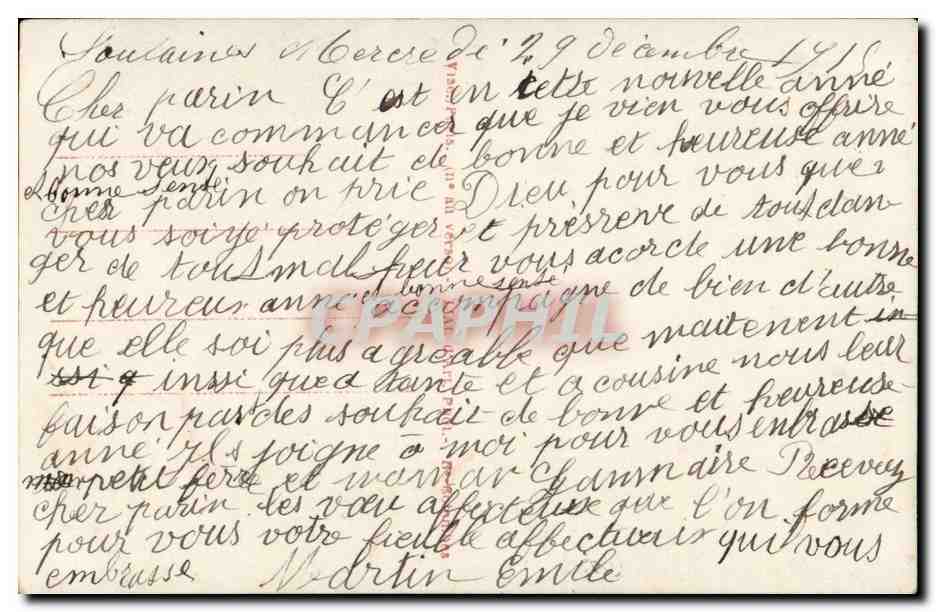 Soulaines Mercredi 29 décembre 191
Cher parin C'est en cette nouvelle anné
qui va commancer que je vien vous offrire
nos veux souhait de bonne et heureuse anné
et bonne sente
cher parin on prie Dieu pour vous que
vous soiyé protéger et présrene de tout dan-
ger de tous malheur vous acorde une bonne
et bonne sente
et heureus anne acompagne de bien d'autre
que elle soi plus agréable que maitenent in
inssi que a tante et a cousine nous leur
faison pas des souhait de bonne et heureuse
anné ils joigne a moi pour vous entrasse
petit frère et maman Recevez
cher parin les vœu affectueux que l'on forme
pour vous votre fieulle affectueus qui vous
embrasse Martin Emile
CPAPHIL